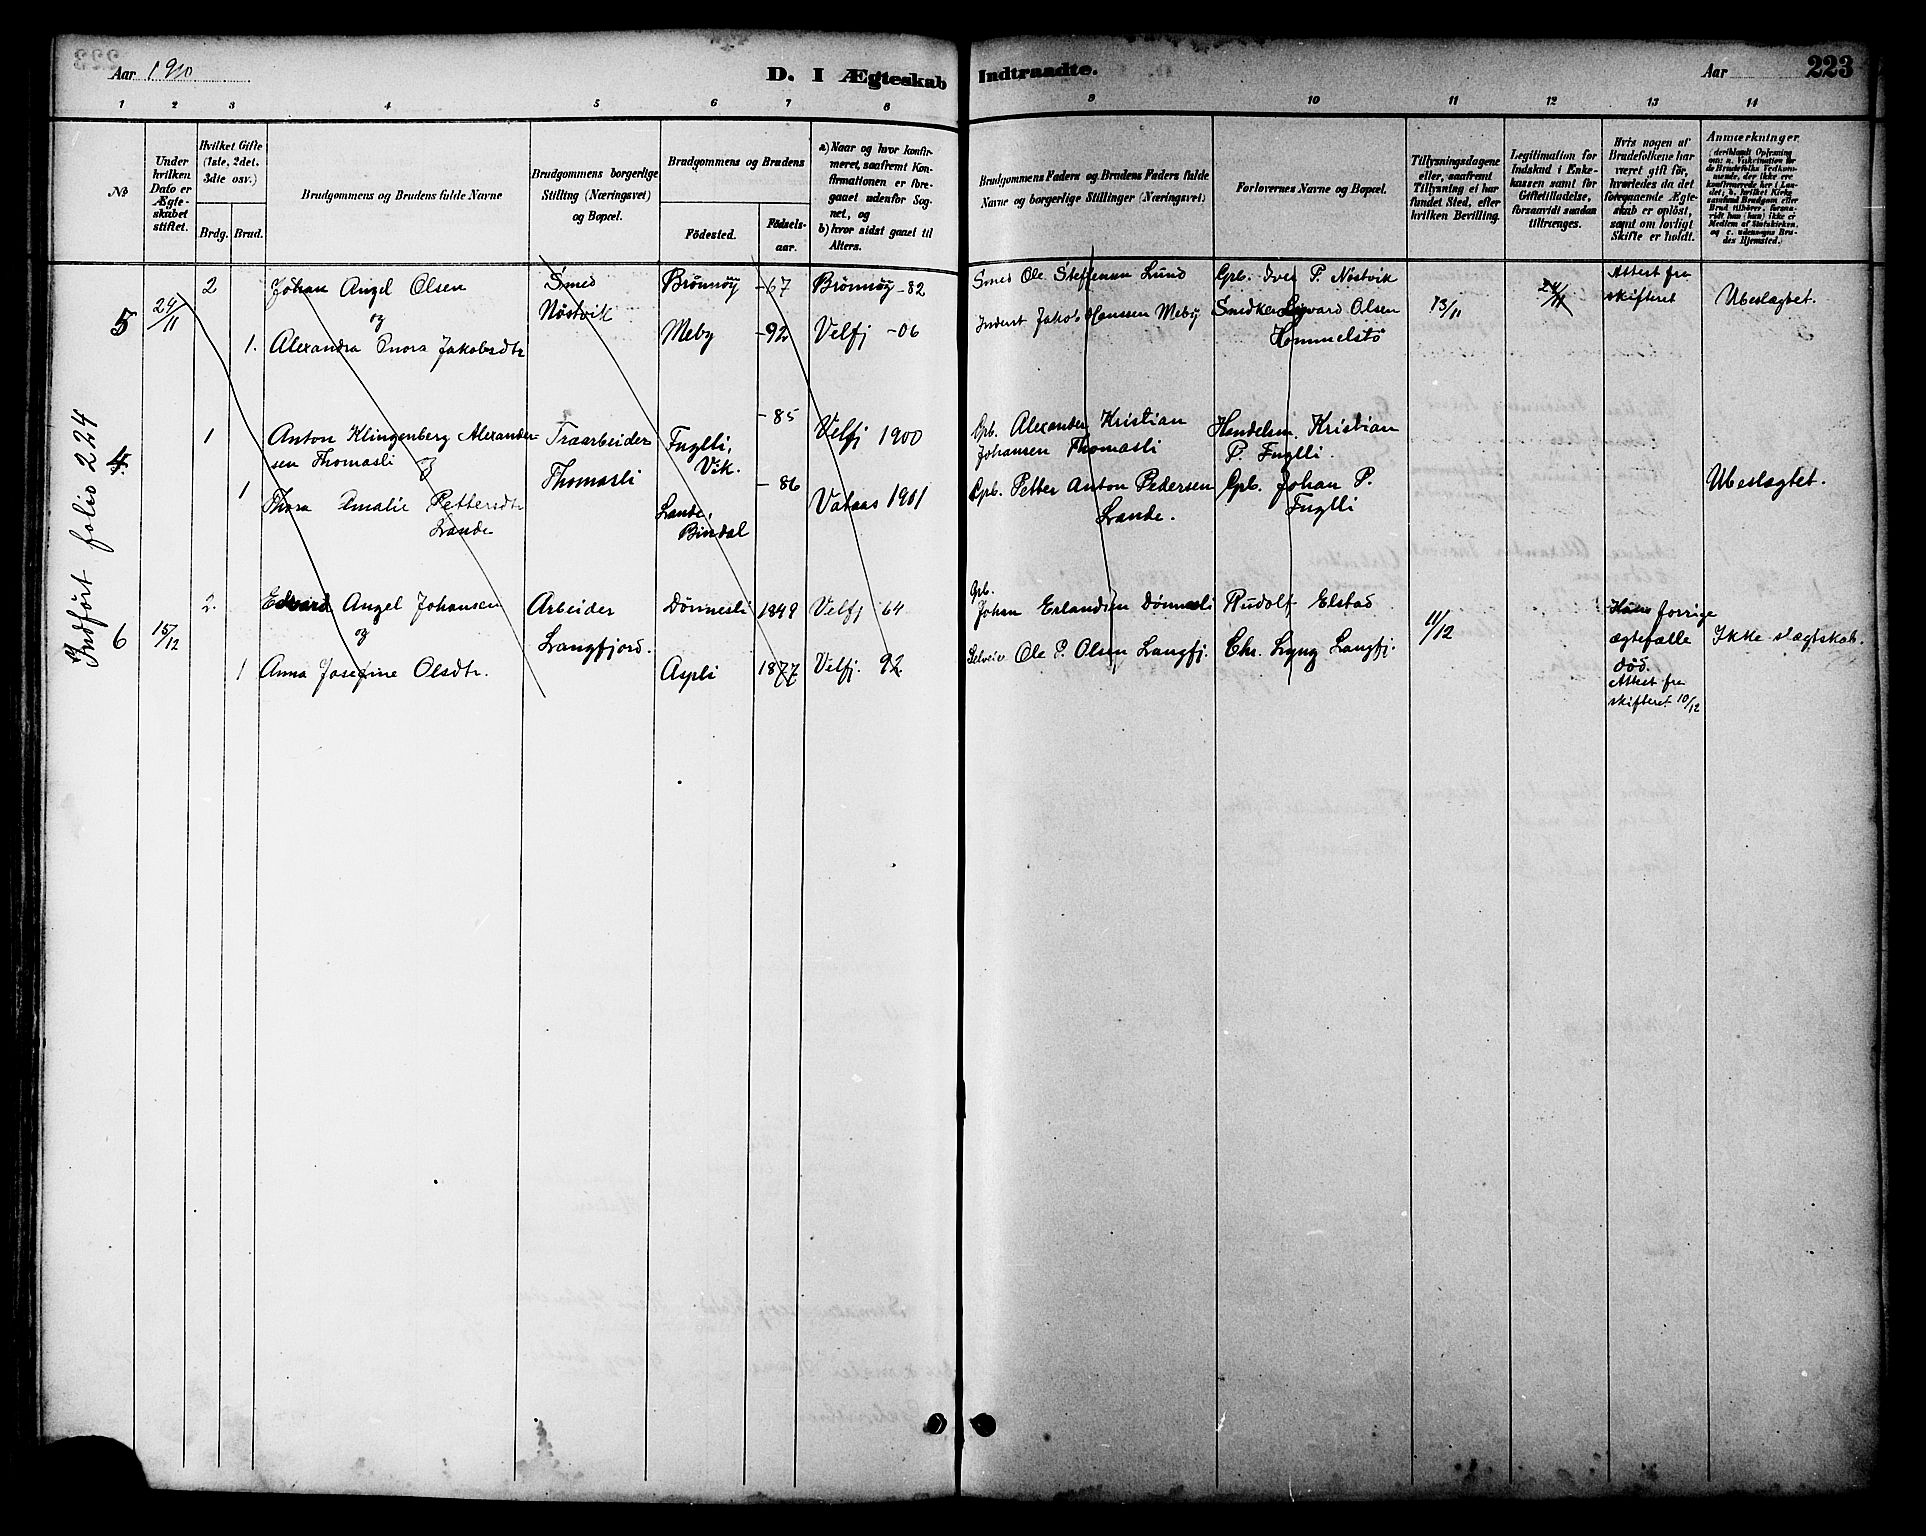 Aar 1910
D. I Ægteskab
Indtraadte.
Aar
223
1 2 3 4 5 6 7 8
9 10 11 12 13 14
No
Under hvilken Dato er Ægteskabet stiftet.
Hvilket Gifte (1ste, 2det, 3die osv.)
Brdg. Brud.
Brudgommens og Brudens fulde Navne
Brudgommens borgerlige Stilling (Næringsvei) og Bopæl.
Brudgommens og Brudens
Födested.
Födselsaar.
a) Naar og hvor konfirmeret, saafremt Konfirmationen er foregaaet udenfor Sognet, og
b) hvor sidst gaaet til Alters.
Brudgommens Faders og Brudens Faders fulde Navne og borgerlige Stillinger (Næringsvei)
Forlovernes Navne og Bopæl.
Tillysningsdagene eller, saafremt Tillysning ei har fundet Sted, efter hvilken Bevilling.
Legitimation for Indskud i Enkekassen samt for Giftetilladelse, forsaavidt saadan tiltrænges.
Hvis nogen af Brudefolkene har været gift før, hvorledes da det foregaaende Ægteskab er opløst, samt om lovligt Skifte er holdt.
Anmærkninger
Indført folio 224
5
24/11
2
Johan Angel Olsen
og
1. Alexandra Jakobsdtr
Smed
Nöstvik
Brönnöy -67 Brönnöy -82
Meby -92 Velfj -06
Smed Ole Steffensen Lund
Inderst Jakob Hanssen Meby
Gpb. Iver P. Nöstvik
Olsen
Hommelstö
13/11
24/11
Attest fra
skifteret
Ubeslægtet.
4.
1
Anton Klingenberg Alexandersen Thomasli
og
1
Thora Amalie Pettersdtr
Lande
Traarbeider
Thomasli
Fuglli,
Vik.
Lande,
Bindal
-85
-86
Velfj 1900
Vataas 1901
Gpb. Alexander Kristian
Johansen Thomasli
Gpb. Petter Anton Pedersen
Lande.
Handelsm. Kristian
P. Fuglli.
Gpb. Johan P.
Fuglli
Ubeslægtet.
6
15/12
2.
Edvard Angel Johansen
og
1 Anna Josefine Olsdtr.
Arbeider
Langfjord.
Dönnesli 1849 Velfj 64.
Aspli 1877 Velfj. 92
Gpb.
Johan Erlandsen Dönnesli
Selveier Ole P. Olsen Langfj.
Rudolf Elstad
Chr. Lyng Langfj.
11/12
Hans forrige
ægtefælle
död.
Attest fra
skifteret 10/12
Ikke slægtskab.